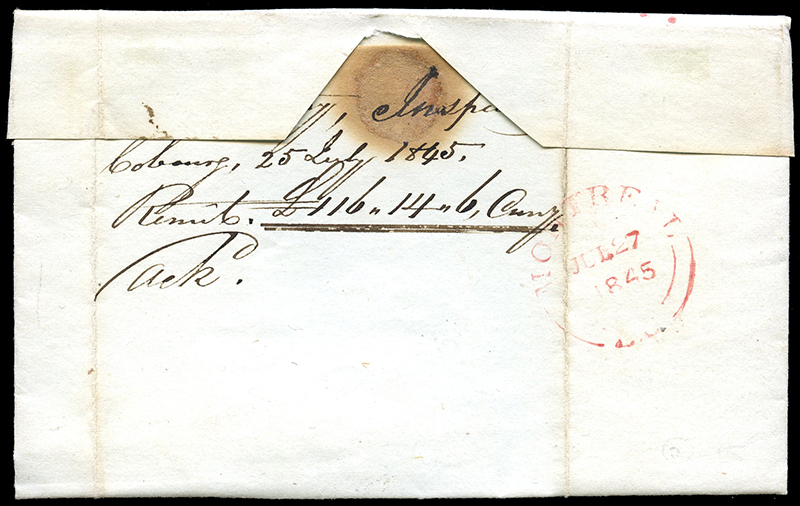 Inspe
Cobourg, 25 July 1845.
Remitt. £116 „ 14 „ 6, Curry.
Ackd.
MONTREAL
JUL 27
1845
L.C.